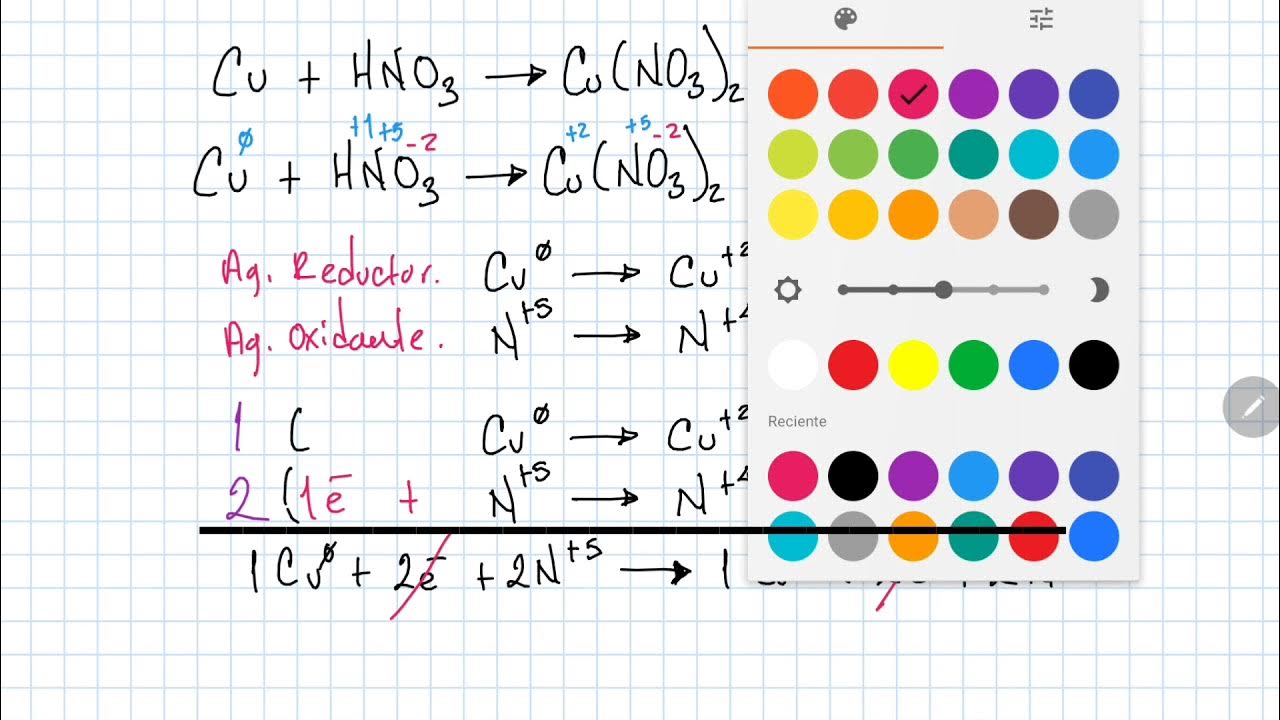 Cu + HNO3 → Cu(NO3)2
0 +1 +5 -2 +2 +5 -2
Cu + HNO3 → Cu(NO3)2
Ag. Reductor. Cu0 → Cu+2
Ag. Oxidante. N+5 → N+4
1 ( Cu0 → Cu+2
2 (1e- + N+5 → N+4
1 Cu0 + 2e- + 2N+5 → 1
Reciente